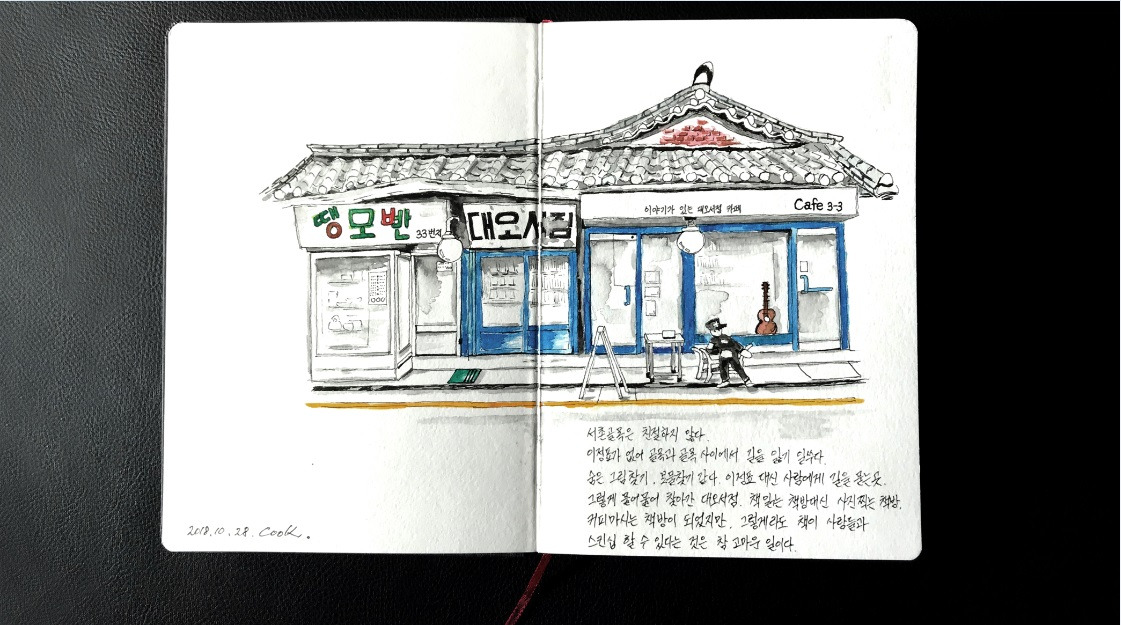 땡모반 33번지
대오서점
이야기가 있는 대오서점 카페
Cafe 3-3
서촌골목은 친절하지 않다.
이정표가 없어 골목과 골목 사이에서 길을 잃기 일쑤다.
숨은 그림찾기, 보물찾기 같다. 이정표 대신 사람에게 길을 묻는 곳.
그렇게 물어물어 찾아간 대오서점. 책읽는 책방대신 사진찍는 책방,
커피마시는 책방이 되었지만, 그렇게라도 책이 사람들과
스킨십 할 수 있다는 것은 참 고마운 일이다.
2018.10.28. Cook.